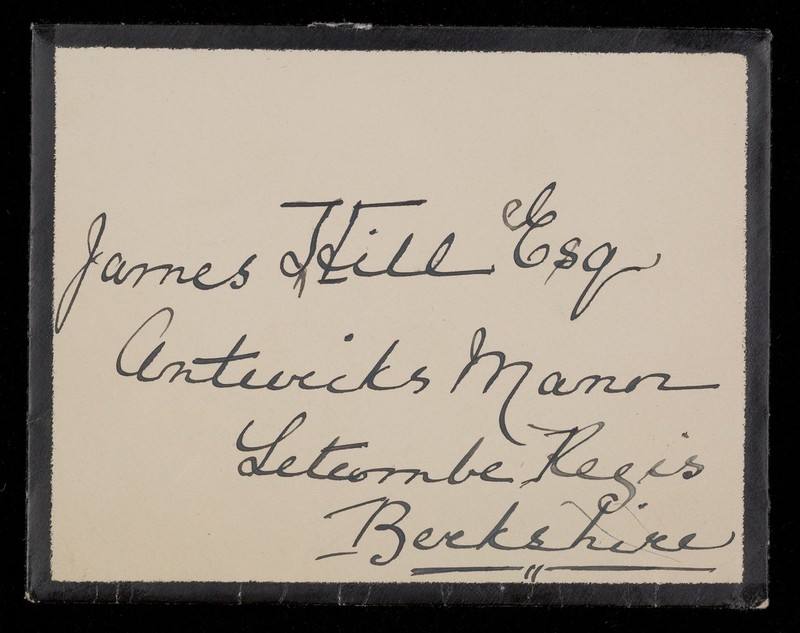 James Hill Esq
Antwicks Manor
Letcombe Regis
Berkshire